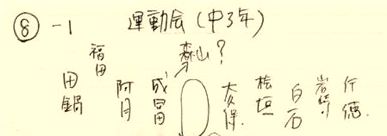 ⑧-1 運動会(中3年)
福田
森山?
田鍋
阿月
成冨
大俣
桧垣
白石
岩崎
行徳